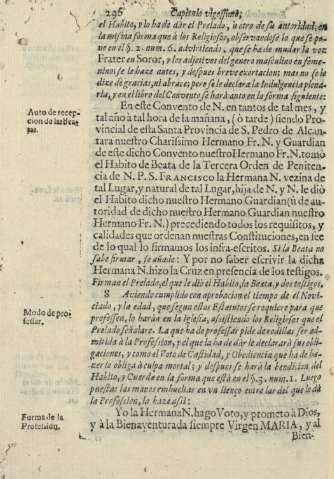 296 Capitulo vigessimo,
el Habito, y lo ha de dàr el Prelado, ù otro de su autoridad, en
la misma forma que à los Religiosos, observandose lo que se po-
ne en el §. 2. num. 6. advirtiendo, que se ha de mudar la voz
Frater en Soror, y los adjetivos del genero masculino en feme-
nino: se le haze antes, y despues breve exortacion; mas no se la
dize de gracias, ni abraza; pero se le declara la Indulgencia plena-
ria, y en el libro del Convento se harà anten la forma siguiente:
Auto de recep-
cion de las Bea-
tas.
En este Convento de N. en tantos de tal mes, y
tal año à tal hora de la mañana, (ò tarde) siendo Pro-
vincial de esta Santa Provincia de S. Pedro de Alcan-
tara nuestro Charissimo Hermano Fr. N. y Guardian
de este dicho Convento nuestro Hermano Fr. N. tomò
el Habito de Beata de la Tercera Orden de Peniten-
cia de N. P. S. FRANCISCO la Hermana N. vezina de
tal Lugar, y natural de tal Lugar, hija de N. y N. le diò
el Habito dicho nuestro Hermano Guardian (ù de au-
toridad de dicho nuestro Hermano Guardian nuestro
Hermano Fr. N.) precediendo todos los requisitos, y
calidades que ordenan nuestras Constituciones, en fee
de lo qual lo firmamos los infra-escritos. Si la Beata no
sabe firmar, se añade: Y por no saber escrivir la dicha
Hermana N. hizo la Cruz en presencia de los testigos.
Firman el Prelado, el que le diò el Habito, la Beata, y dos testigos.
Modo de pro-
fessar.
8 Aviendo cumplido con aprobacion el tiempo de el Novi-
ciado, y la edad, que segun estos Estatutos se requiere para que
professen, lo haràn en la Iglesia, assistiendo los Religiosos que el
Prelado señalare. La que ha de professar pide de rodillas ser ad-
mitida à la Profession, y el que la ha de dàr le declararà sus obli-
gaciones, y como el Voto de Castidad, y Obediencia que ha de ha-
zer la obliga à culpa mortal; y despues se harà la bendicion del
Habito, y Cuerda en la forma que està en el §. 3. num. 1. Luego
puestas las manos embueltas en un lienzo entre las del que le dà
la Profession, la haze assi:
Forma de la
Profession.
Yo la Hermana N. hago Voto, y prometo à Dios,
y à la Bienaventurada siempre Virgen MARIA, y al
Bien-